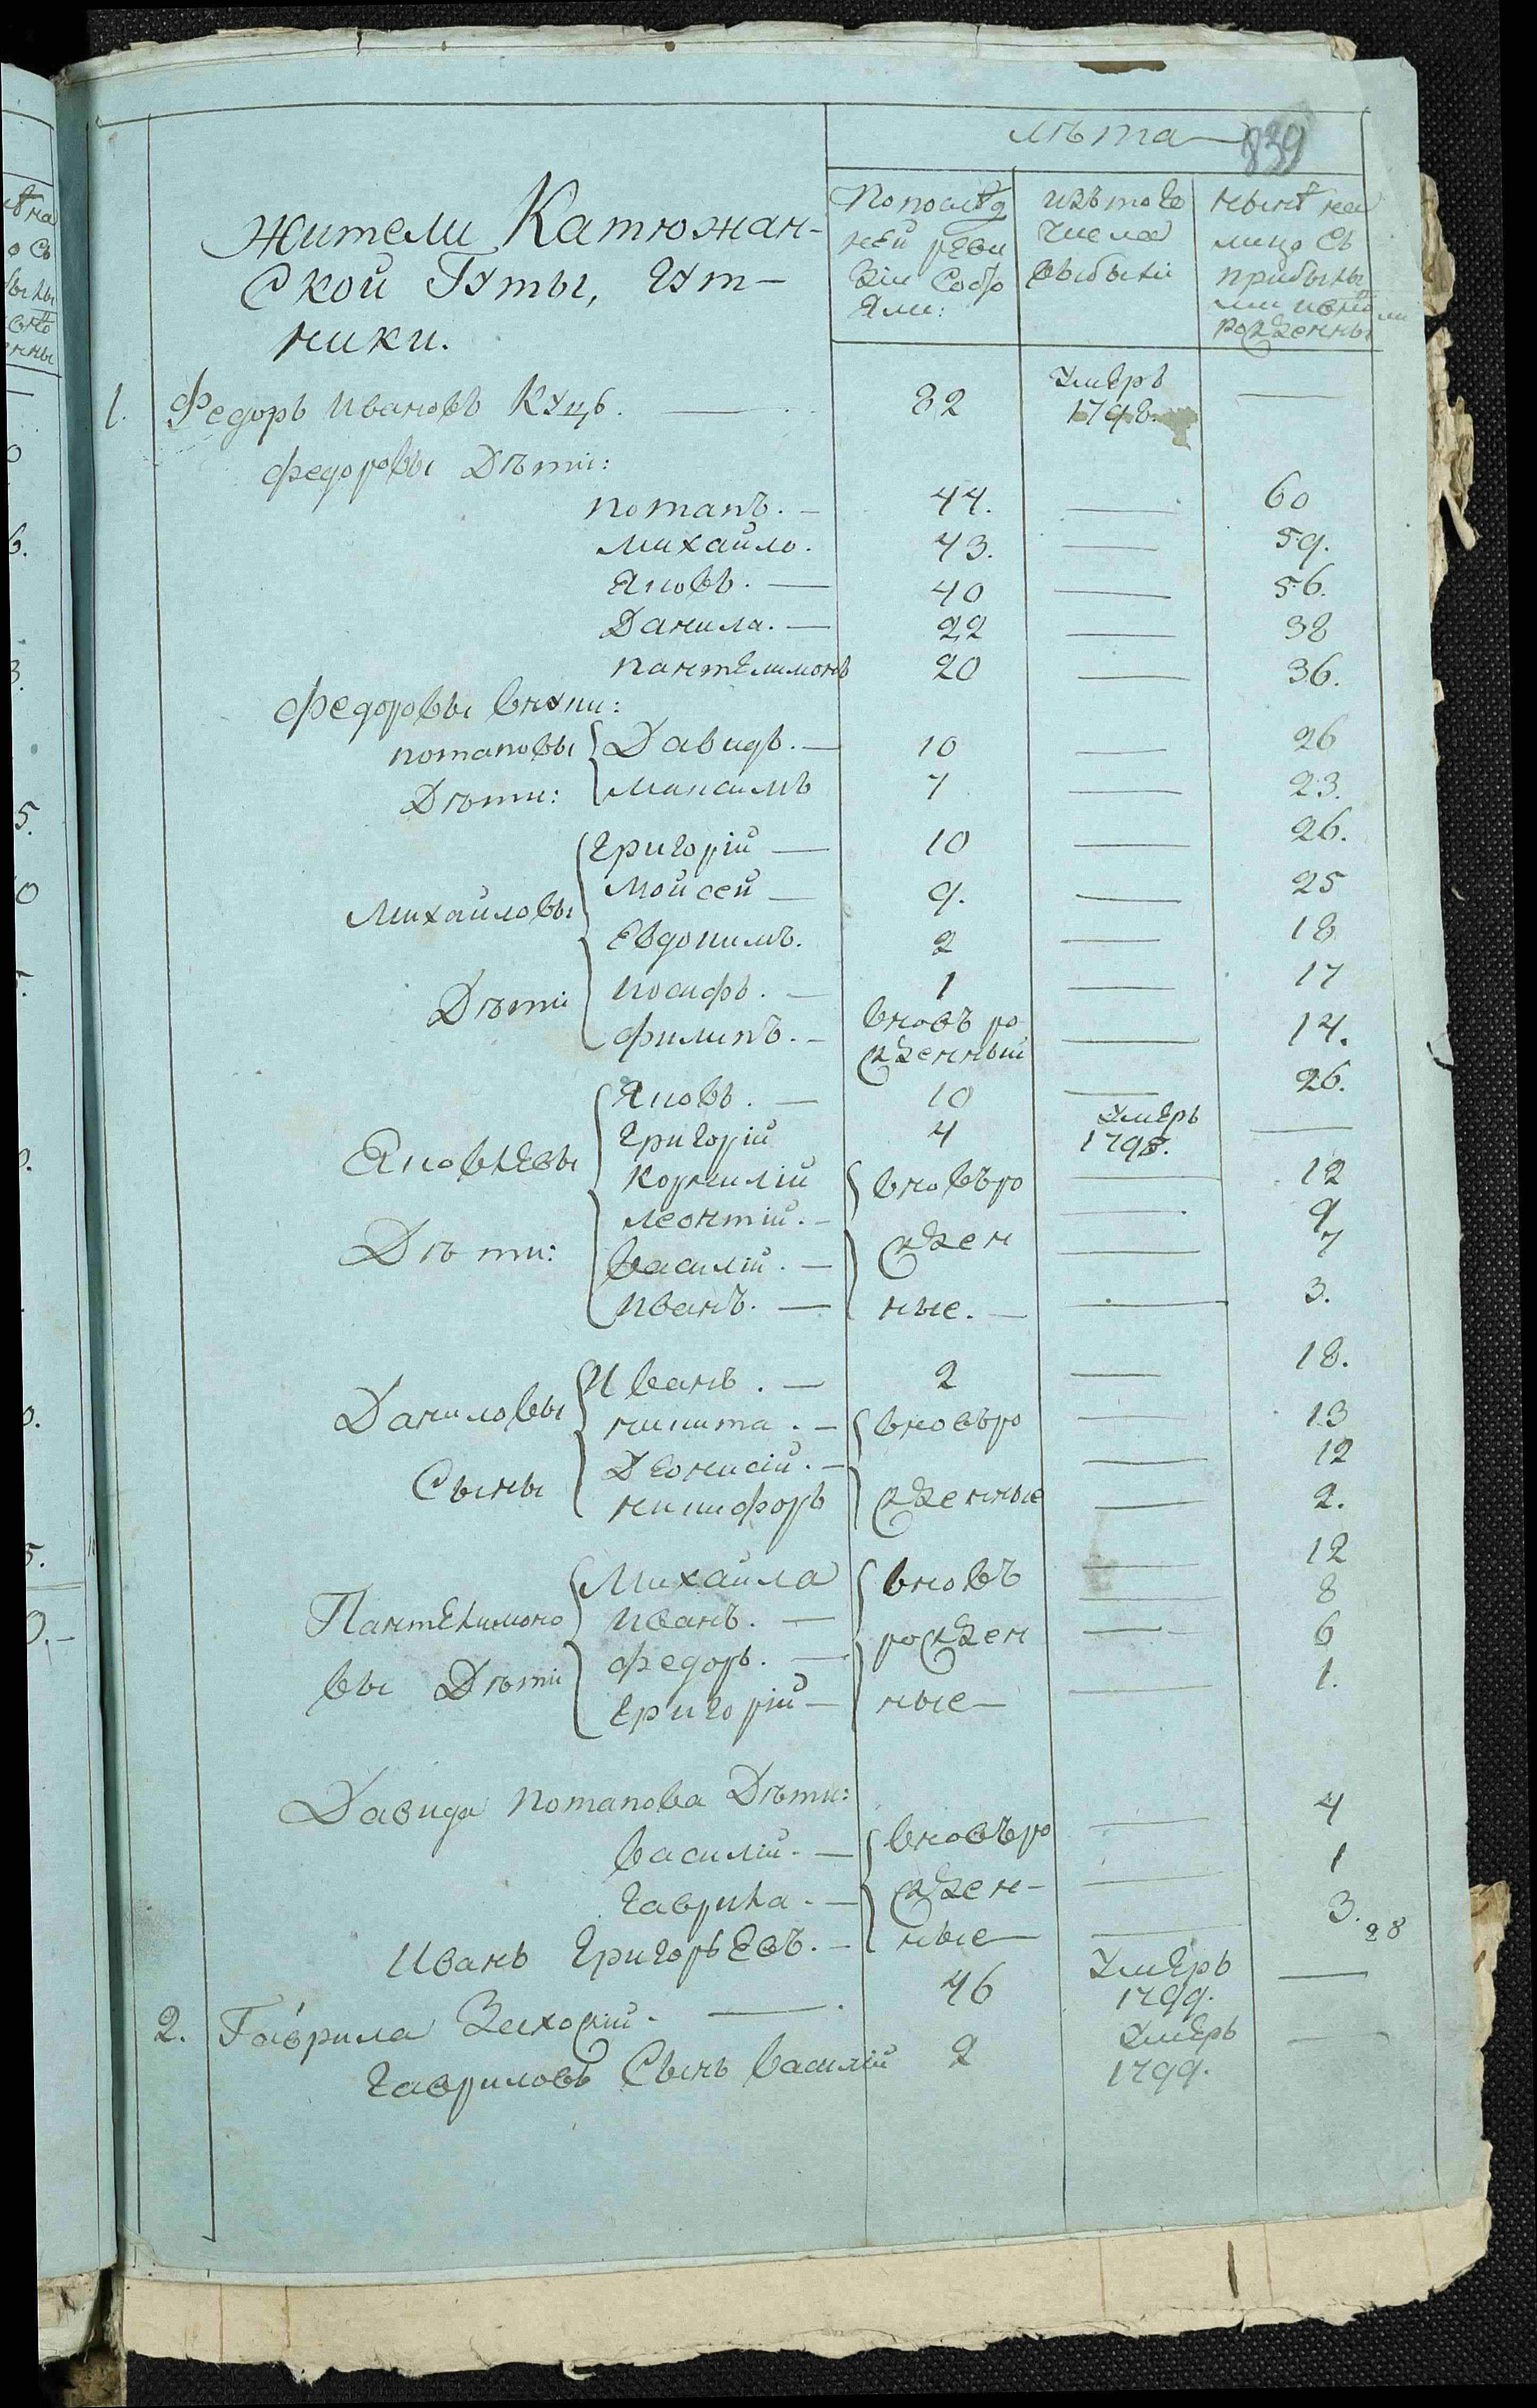 лѣта
839
Жители Катюжан-
ской Гуты, гут-
ники.
По послѣд
ней реви
зіи состо
яли:
изъ того
числа
выбыли
нынѣ на
лицо съ
прибылы
ми и вновь
рожденны
ми
1. Федоръ Ивановъ Куцъ. — 82 умеръ 1798. —
Федоровы Дѣти:
Потапъ. — 44. — 60
Михайло. 43. — 59.
Яковъ. — 40 — 56.
Данила. — 22 — 38
Пантелимонъ 20 — 36.
Федоровы внуки:
Потаповы Дѣти: Давидъ. — 10 — 26
Максимъ 7 — 23.
Михайловы Дѣти Григорій — 10 — 26.
Мойсей — 9. — 25
Евдокимъ. 2 — 18
Иосифъ. — 1 — 17
Филипъ. — вновъ ро жденный — 14.
Яковлевы Дѣти: Яковъ. — 10 — 26.
Григорій 4 умеръ 1798. —
Корнилій вновъ ро — 12
Леонтій. — жден — 9
Василій. — — 7
Иванъ. — ные. — — 3.
Даниловы Сыны Иванъ. — 2 — 18.
Никита. — вновъ ро — 13
Деонисій. — — 12
Никифоръ жденные — 2.
Пантелимоно вы Дѣти Михайла вновъ — 12
Иванъ. — — 8
Федоръ. — рожден — 6
Григорій — ные — — 1.
Давида Потапова Дѣти:
Василій. — вновъ ро — 4
Гаврила. — жден- — 1
Иванъ Григорьевъ. — ные — — 3.
28
2. Гаврила — 46 умеръ 1799. —
Гавриловъ Сынъ Василій 2 умеръ 1799. —